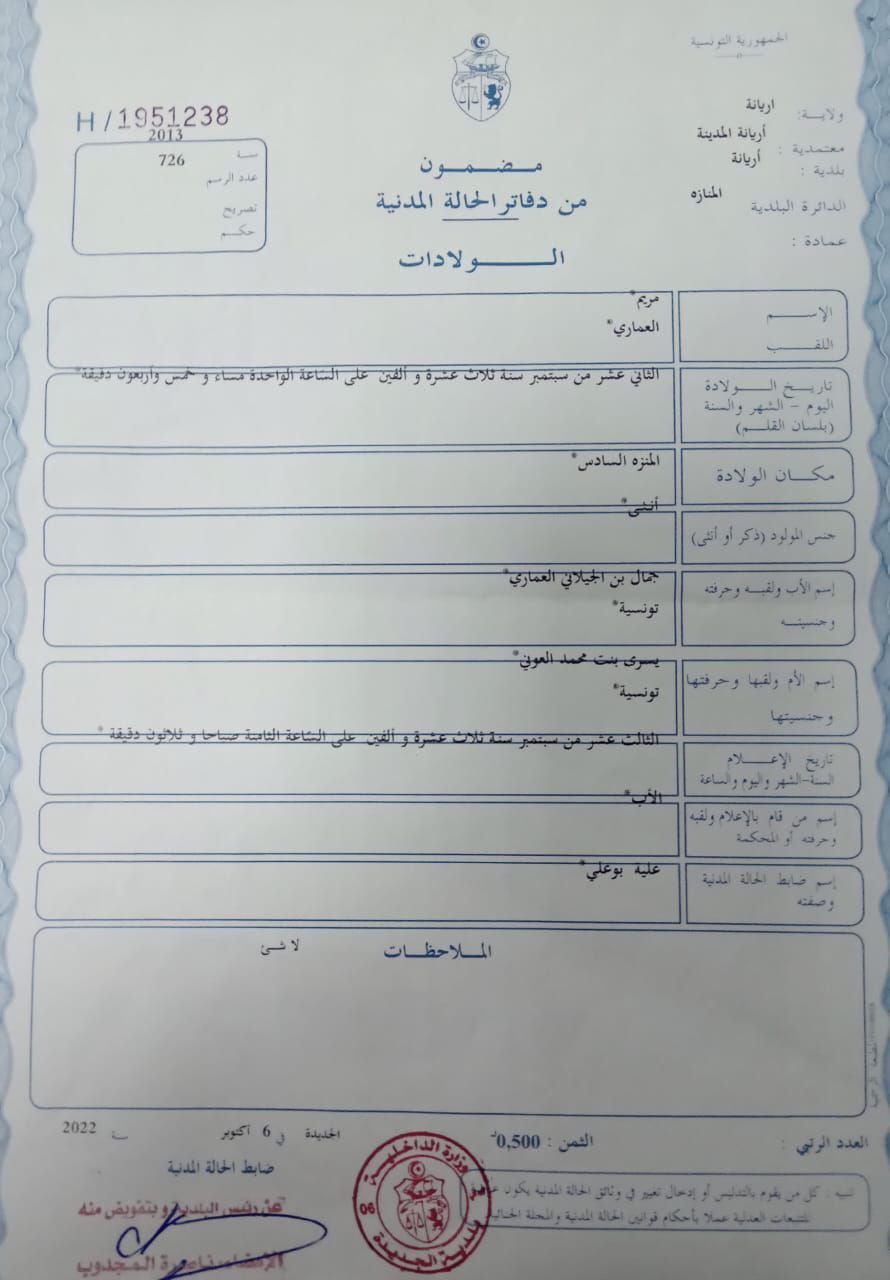 الجمهورية التونسية
ولاية: اريانة
معتمدية : أريانة المدينة
بلدية : أريانة
الدائرة البلدية المنازه
عمادة :
H / 1951238
سنة 2013
عدد الرسم 726
تصريح
حكم
مضمون
من دفاتر الحالة المدنية
الولادات
الإسم مريم*
اللقب العماري*
تاريخ الولادة
اليوم - الشهر والسنة
(بلسان القلم)
الثاني عشر من سبتمبر سنة ثلاث عشرة و ألفين على الساعة الواحدة مساء و خمس وأربعون دقيقة*
مكان الولادة المنزه السادس*
جنس المولود (ذكر أو أنثى) أنثى*
إسم الأب ولقبه وحرفته جمال بن الجيلاني العماري*
وجنسيته تونسية*
إسم الأم ولقبها وحرفتها يسرى بنت محمد العوني*
وجنسيتها تونسية*
تاريخ الإعلام
السنة-الشهر واليوم والساعة
الثالث عشر من سبتمبر سنة ثلاث عشرة و ألفين على الساعة الثامنة صباحا و ثلاثون دقيقة *
إسم من قام بالإعلام ولقبه
وحرفته أو المحكمة
الأب*
إسم ضابط الحالة المدنية
وصفته
علية بوعلي*
الملاحظات
لا شئ
العدد الرتبي :
الثمن : 0,500د
الجديدة في 6 أكتوبر سنة 2022
ضابط الحالة المدنية
عن رئيس البلدية و بتفويض منه
الإمضاء: ناصرة المجدوب
وزارة الداخلية
بلدية الجديدة
06
تنبيه : كل من يقوم بالتدليس أو إدخال تغيير في وثائق الحالة المدنية يكون
للتتبعات العدلية عملا بأحكام قوانين الحالة المدنية والمجلة